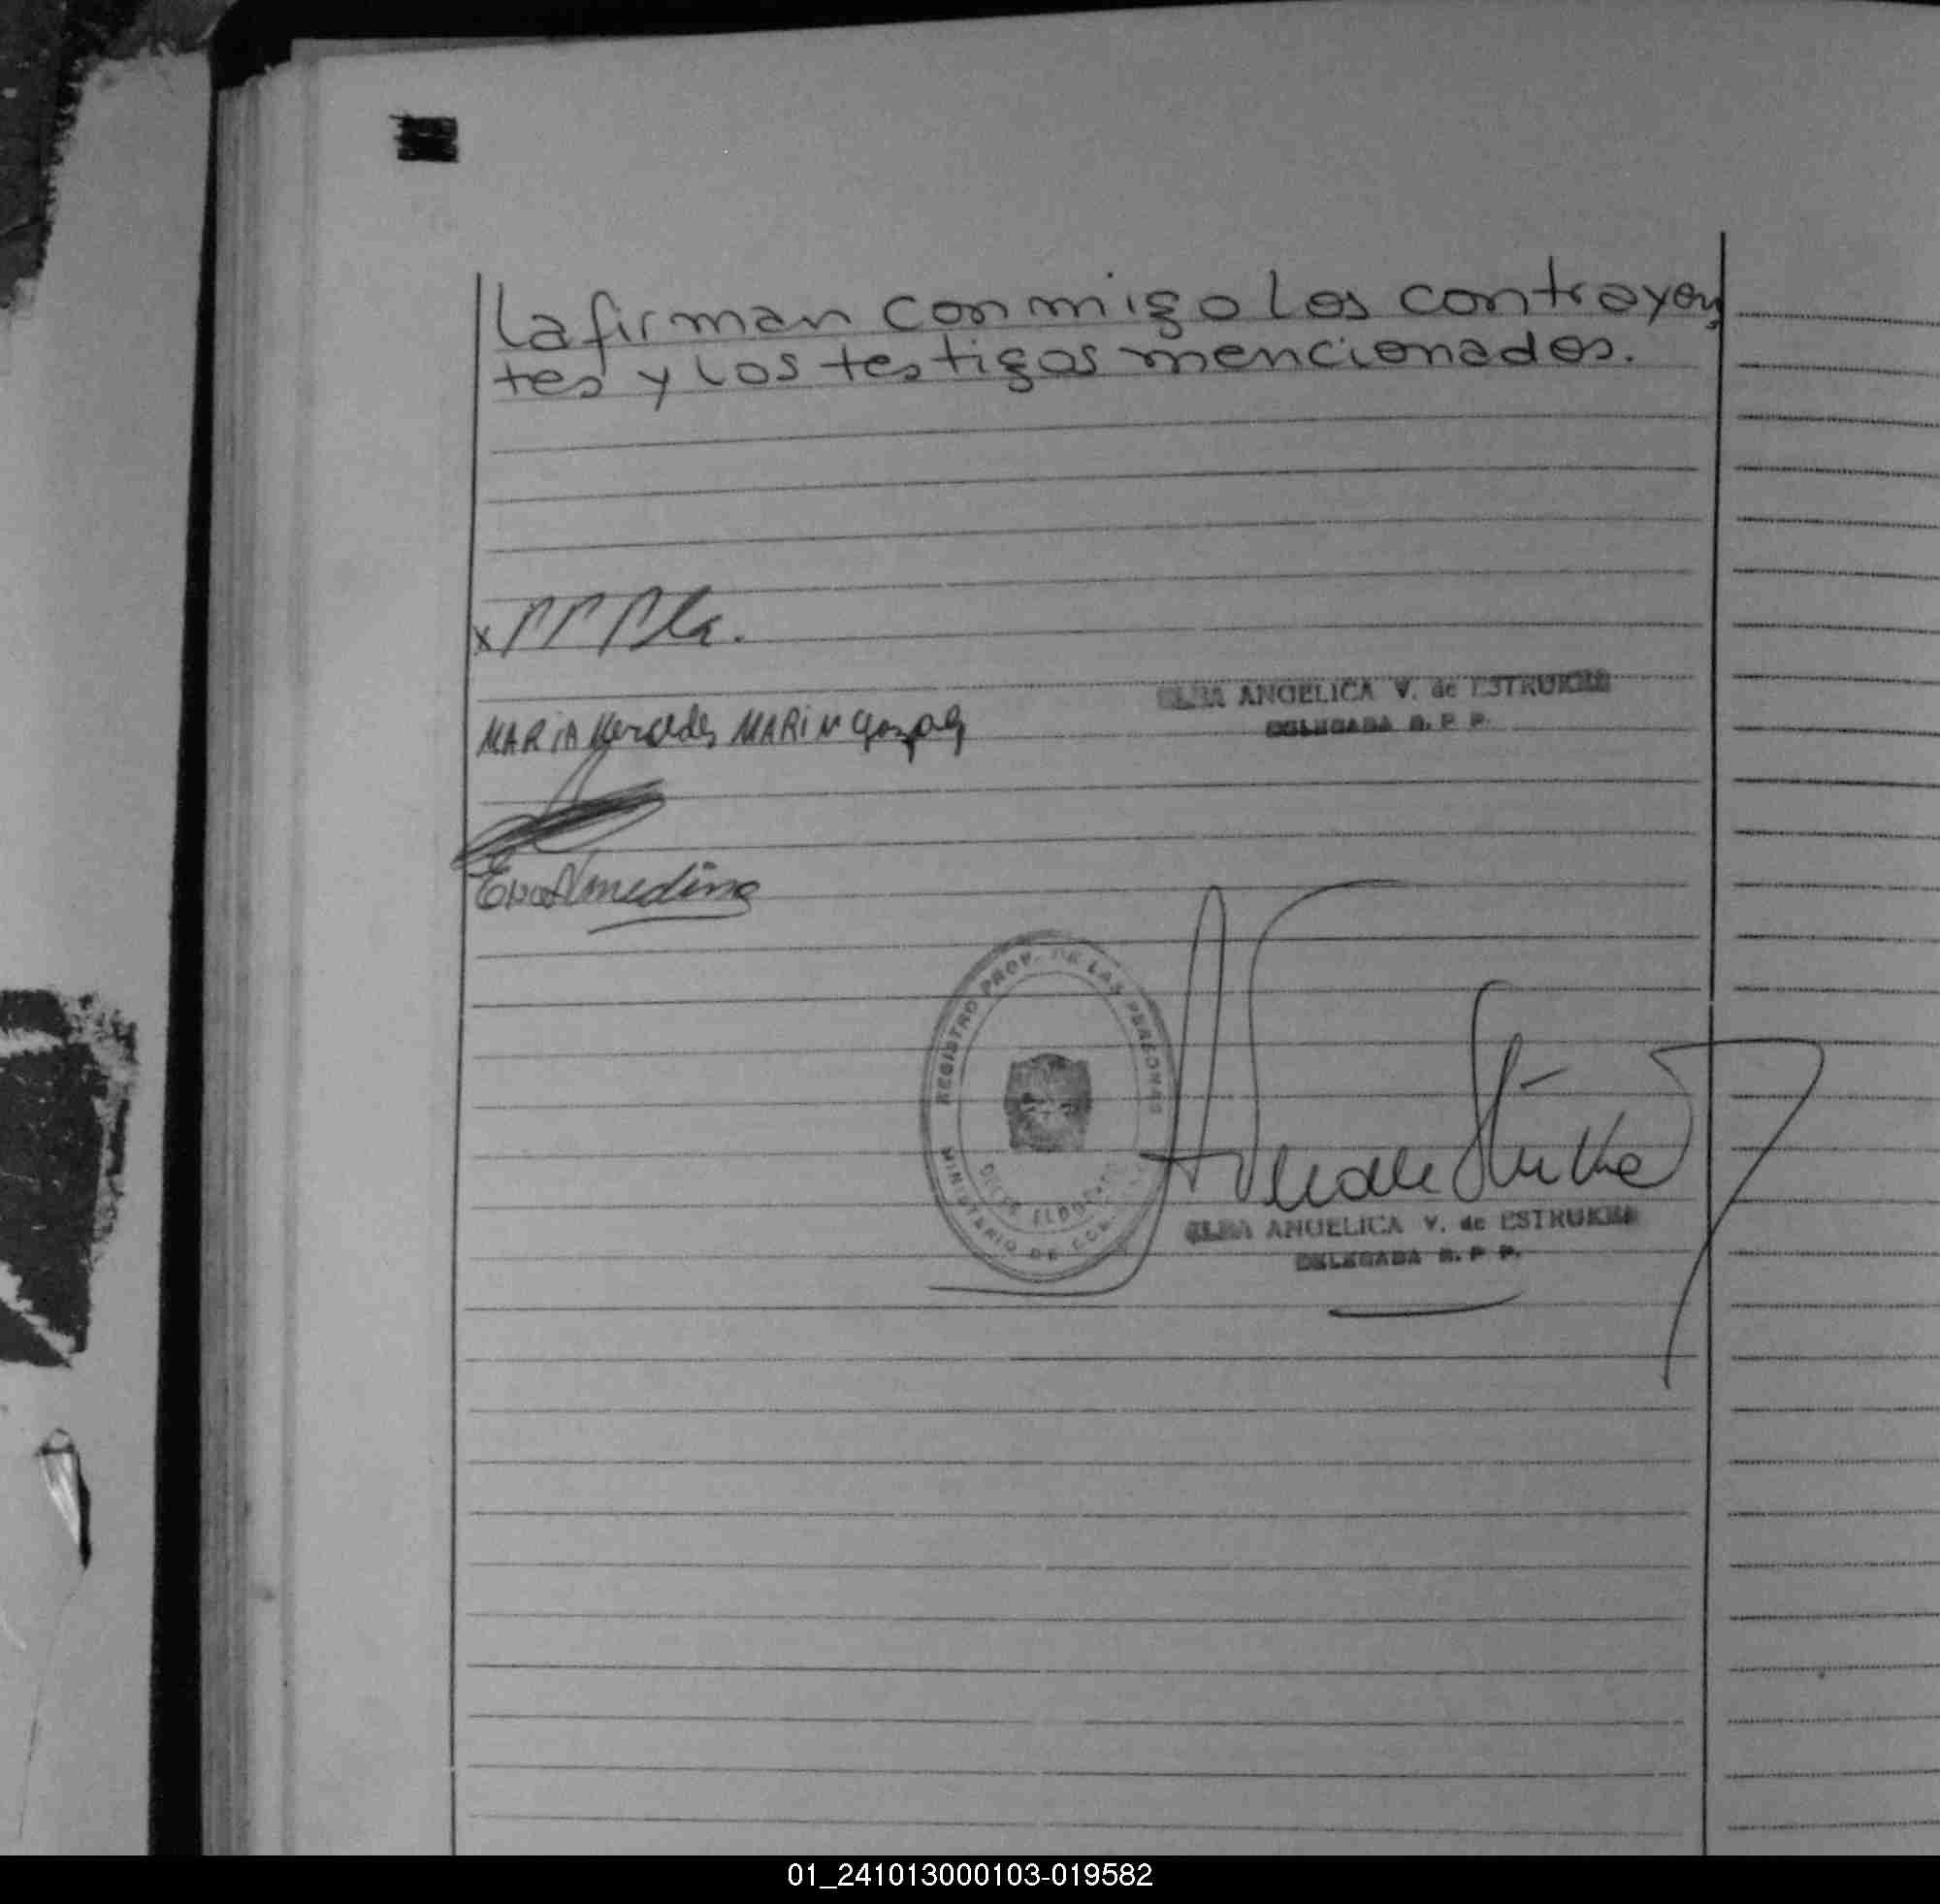 la firman conmigo los contrayen
tes y los testigos mencionados.
MARIA Mercedes MARIN
ELBA ANGELICA V. de ESTRUKEL
DELEGADA R. P. P.
REGISTRO PROV. DE LAS PERSONAS
MINISTERIO DE
ELBA ANGELICA V. de ESTRUKEL
DELEGADA R. P. P.
01_241013000103-019582